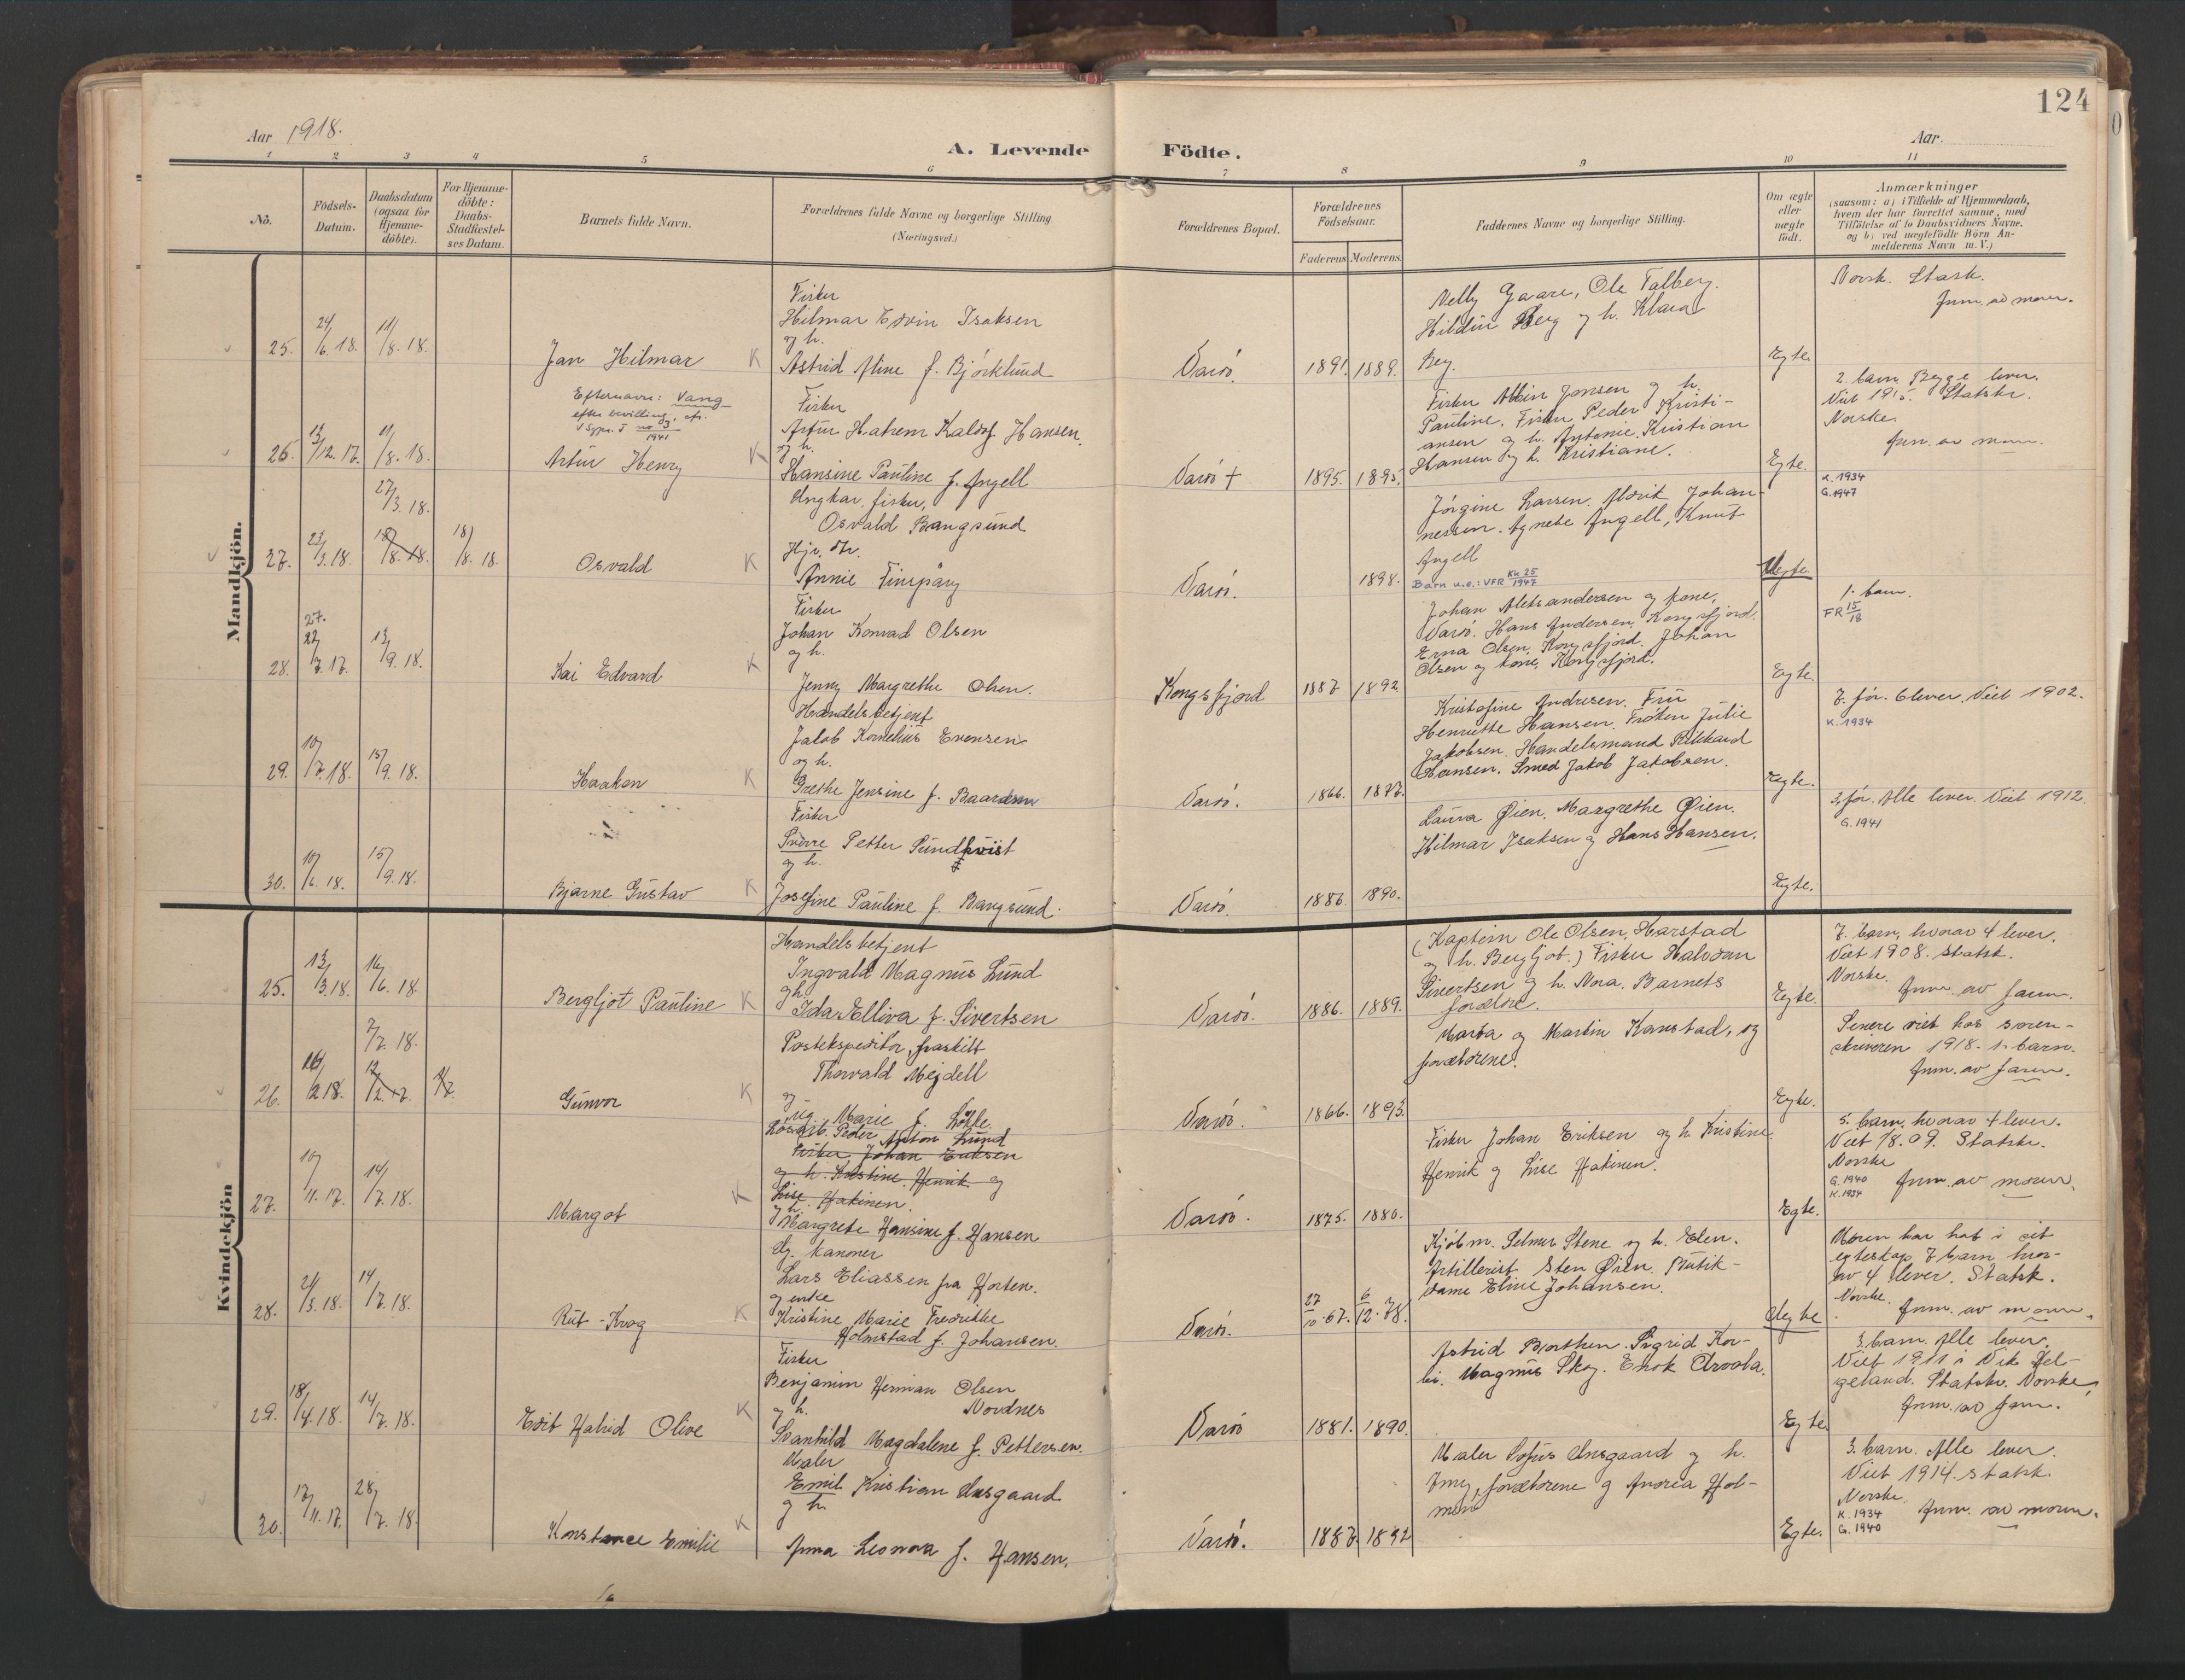 124
Aar 1918.
Aar.
A. Levende Födte.
1 2 3 4 5 6 7 8 9 10 11
No.
Födsels-
Datum.
Daabsdatum
(ogsaa for
Hjemme-
döbte).
For Hjemme-
döbte:
Daabs-
Stadfæstel-
ses Datum.
Barnets fulde Navn.
Forældrenes fulde Navne og borgerlige Stilling
(Næringsvei.)
Forældrenes Bopæl.
Forældrenes
Födselsaar.
Faderens Moderens.
Faddernes Navne og borgerlige Stilling.
Om ægte
eller
uægte
födt.
Anmærkninger
(saasom: a) i Tilfælde af Hjemmedaab,
hvem der har forrettet samme, med
Tilföielse af to Daabsvidners Navne.
og b) ved uægtefödte Börn An-
melderens Navn m. V.)
Mandkjön.
25. 24/6. 18. 11/8. 18.
Jan Hilmar K
Fisker
Hilmar Edvin Isaksen
og h.
Astrid Aline f. Björklund
Vardö. 1891. 1889.
Nelly Gaare, Ole Falberg.
Hildur Berg og h. Klara
Berg.
Egte.
Norsk. Statsk.
frem. av moren.
26. 13/12. 17. 11/8. 18.
Efternavn: Vang
efter bevilling, cfr.
no 3
1941
Artur Henry K
Fisker
Artur Hatrem Kaldof Hansen.
og h.
Hansine Pauline f. Angell
Vardö + 1895. 1895.
Fisker Albin Jensen og h.
Pauline. Fisker Peder Kristi-
ansen og h. Antonie. Kristian
Hansen og h. Kristiane.
Egte.
2. barn. Begge lever.
Viet 1915. Statsk.
Norske.
frem. av moren.
27. 23/3. 18. 27/3. 18. 18/8. 18. 18/8. 18.
Osvald K
Ungkar, fisker,
Osvald Bangsund
Hjv. dtr.
Annie
Vardö. 1898.
Jörgine Larsen. Aldrik Johan-
nessen. Agnete Angell, Knut
Angell
Barn u.e.: VFR Kk 25
1947
Uegte.
K. 1934
G. 1947
28. 27. 22/7. 17. 13/9. 18.
Kai Edvard K
Fisker
Johan Konrad Olsen
og h.
Jenny Margrethe Olsen.
Kongsfjord 1887 1892
Johan Aleksandersen og kone,
Vardö. Hans Andersen, Kongsfjord.
Erna Olsen, Kongsfjord. Johan
Olsen og kone, Kongsfjord.
Egte.
1. barn.
FR 15
18
29. 10/7. 18. 15/9. 18.
Haakon K
Handelsbetjent
Jakob Kornelius Evensen
og h.
Grethe Jensine f. Baardsen
Vardö. 1866. 1877.
Kristofine Andresen. Fru
Henriette Hansen. Fröken Julie
Jakobsen. Handelsmand Rikkard
Hansen. Smed Jakob Jakobsen.
Egte.
7. för. 6 lever. Viet 1902.
K. 1934
30. 10/6. 18. 15/9. 18.
Bjarne Gustav K
Fisker
Sverre Petter Sundkvist
og h.
Josefine Pauline f. Bangsund.
Vardö. 1886. 1890.
Laura Øien. Margrethe Øien.
Hilmar Isaksen og Hans Hansen.
Egte.
3. för. Alle lever. Viet 1912.
G. 1941
Kvindekjön
25. 13/3. 18. 16/6. 18.
Bergljot Pauline K
Handelsbetjent
Ingvald Magnus Lund
og h.
Ida Elliva f. Sivertsen
Vardö. 1886. 1889.
(Kaptein Ole Olsen, Harstad
og h. Bergljot.) Fisker Halvdan
Sivertsen og h. Nora. Barnets
forældre.
Egte.
7. barn, hvorav 4 lever.
Viet 1908. Statsk.
Norske.
frem. av faren.
26. 2. 18. 7/7. 18.
Gunvor K
Postekspeditör, fraskilt
Thorvald Mejdell
og
ug. Marie f. Lökke.
Vardö. 1866. 1893.
Marta og Martin Kanstad, og
forældrene.
Egte.
Senere viet hos soren-
skriveren 1918. 1. barn.
frem. av faren.
27. 10/11. 17. 14/7. 18.
Margot K
Lösarb. Peder Anton Lund
Fisker Johan Eriksen
og h. Kristine. Henrik og
Lise Hakinen.
og h.
Margrete Hansine f. Hansen
Vardö. 1875. 1880.
Fisker Johan Eriksen og h. Kristine.
Henrik og Lise Hakinen.
Egte.
5. barn, hvorav 4 lever.
Viet 18.09. Statsk.
Norske
G. 1940
K. 1934
frem. av moren.
28. 21/3. 18. 14/7. 18.
Rut-Krog K
Ug. kanoner
Lars Eliassen fra Horten.
og enke
Kristine Marie Fredrikke
Holmstad f. Johansen.
Vardö. 27/10. 67. 6/12. 78.
Kjöbm. Selmer Stene og h. Elen.
Artillerist Sten Øien. Butik-
dame Eline Johansen.
Uegte
Moren har hat i sit
egteskap 7 barn, hvor-
av 4 lever. Statsk.
Norske.
frem. av moren.
29. 18/4. 18. 14/7. 18.
Edit Halvid Olive K
Fisker
Benjamin Herman Olsen
Nordnes
og h.
Svanhild Magdalene f. Pettersen.
Vardö 1881. 1890.
Astrid Borthen. Sigrid Kor-
bi. Magnus Skog. Enok Arvola.
Egte.
3. barn. Alle lever.
Viet 1911 i Vik Hel-
geland. Statsk. Norske,
frem. av faren.
30. 17/11. 17. 28/7. 18.
Konstance Emilie K
Maler
Emil Kristian Ansgaard
og h.
Anna Leonora f. Hansen.
Vardö. 1887. 1892
Maler Sofus Ansgaard og h.
Emy, forældrene og Andrea Hol-
men
Egte.
3. barn. Alle lever.
Viet 1914. Statsk.
Norske.
K. 1934
G. 1940
frem. av moren.